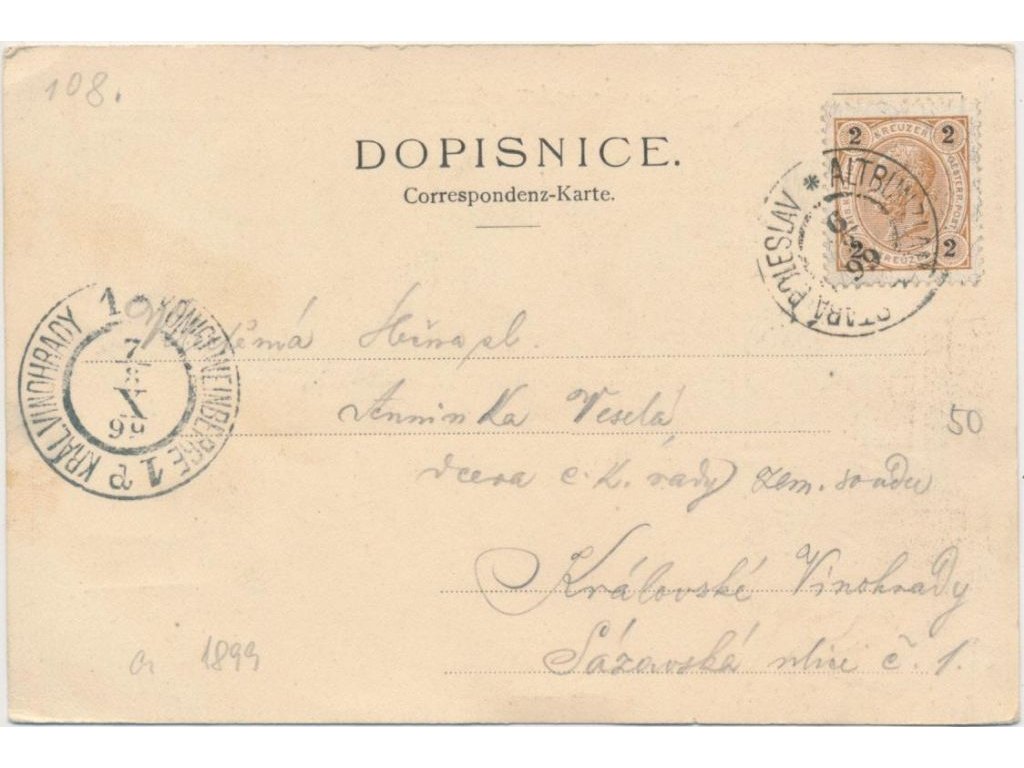 108.
DOPISNICE.
Correspondenz-Karte.
2 KREUZER 2
OESTERR. POST
2 KREUZER 2
STARÁ BOLESLAV * ALTBUNZLAU
99
KRÁL. VINOHRADY 1 KÖNIGL. WEINBERGE 1
7
X
99
Vznešená
Anninka Veselá
50
dcera c. k. rady zem. soudu
Královské Vinohrady
Sázavská ulice č. 1.
1899